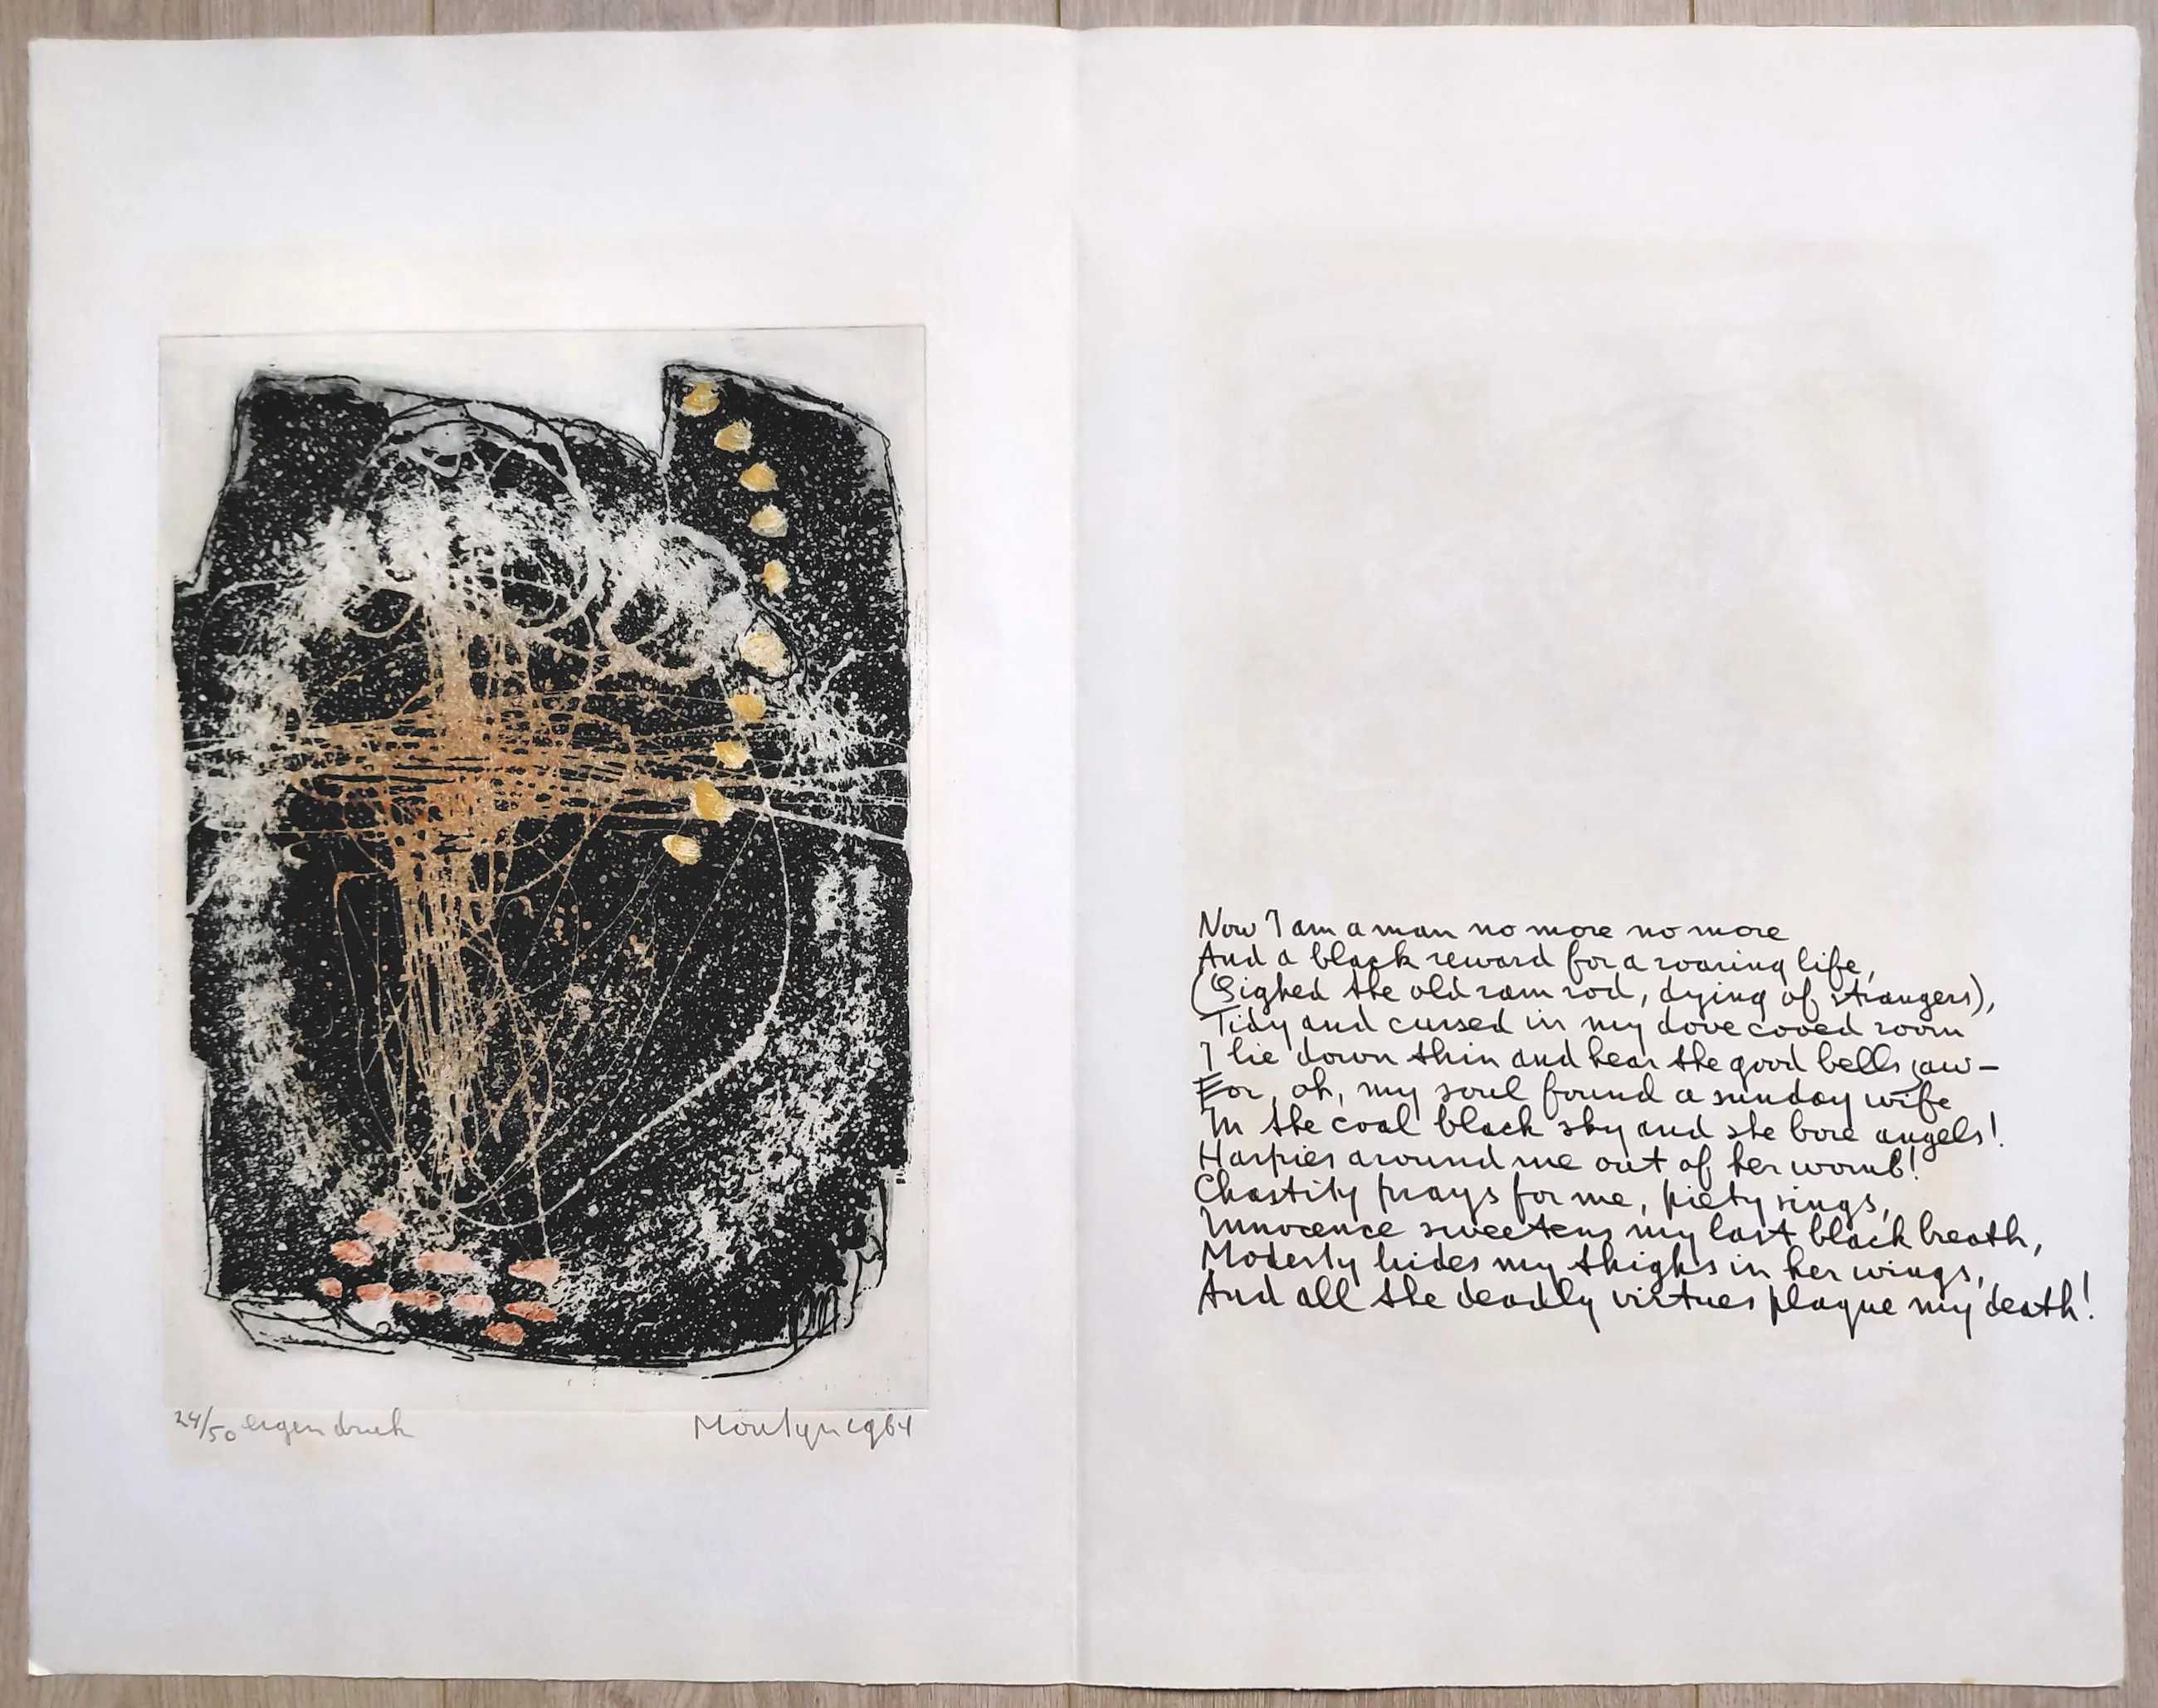 24/50 eigen druk
Mourlyn 1964
Now I am a man no more no more
And a black reward for a roaring life,
(Sighed the old ram rod, dying of strangers),
Tidy and cursed in my dove cooed room
I lie down thin and hear the good bells jaw—
For, oh, my soul found a sunday wife
In the coal black sky and she bore angels!
Harpies around me out of her womb!
Chastity prays for me, piety sings,
Innocence sweetens my last black breath,
Modesty hides my thighs in her wings,
And all the deadly virtues plague my death!